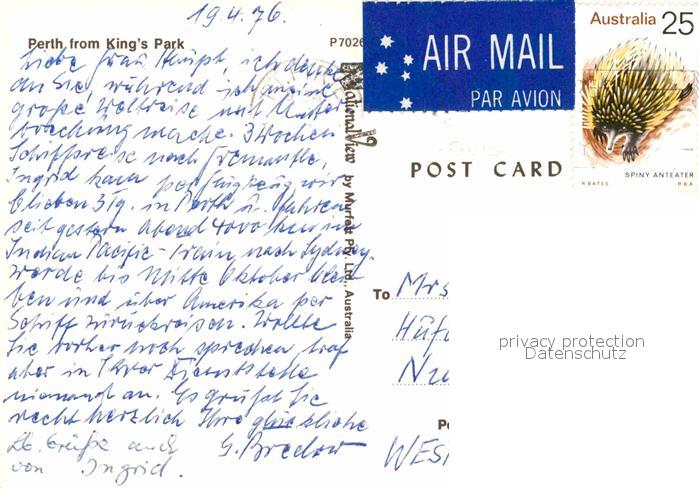 19.4.76.
Perth from King's Park
P7026
Liebe Frau Haupt, ich denke
an Sie, während ich meine
große Weltreise mit Unter
brechung mache. 3 Wochen
Schiffreise nach Fremantle,
Ingrid kam per Flugzeug wir
blieben 3 Tg. in Perth u. fahren
seit gestern Abend 4000 km im
Indian Pacific-Train nach Sydney.
Werde bis Mitte Oktober blei
ben und über Amerika per
Schiff zurückreisen. Wollte
Sie vorher noch sprechen, traf
aber in Ihrer Dienststelle
niemand an. Es grüßt Sie
recht herzlich Ihre glückliche
G. Bredow
Lb. Grüße auch
von Ingrid.
National View
by Murfett Pty. Ltd., Australia
AIR MAIL
PAR AVION
Australia 25
SPINY ANTEATER
R BATES RBA
POST CARD
To Mrs
WES
privacy protection
Datenschutz